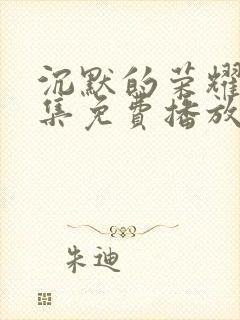 沉默的荣耀
集免费播放
朱迪